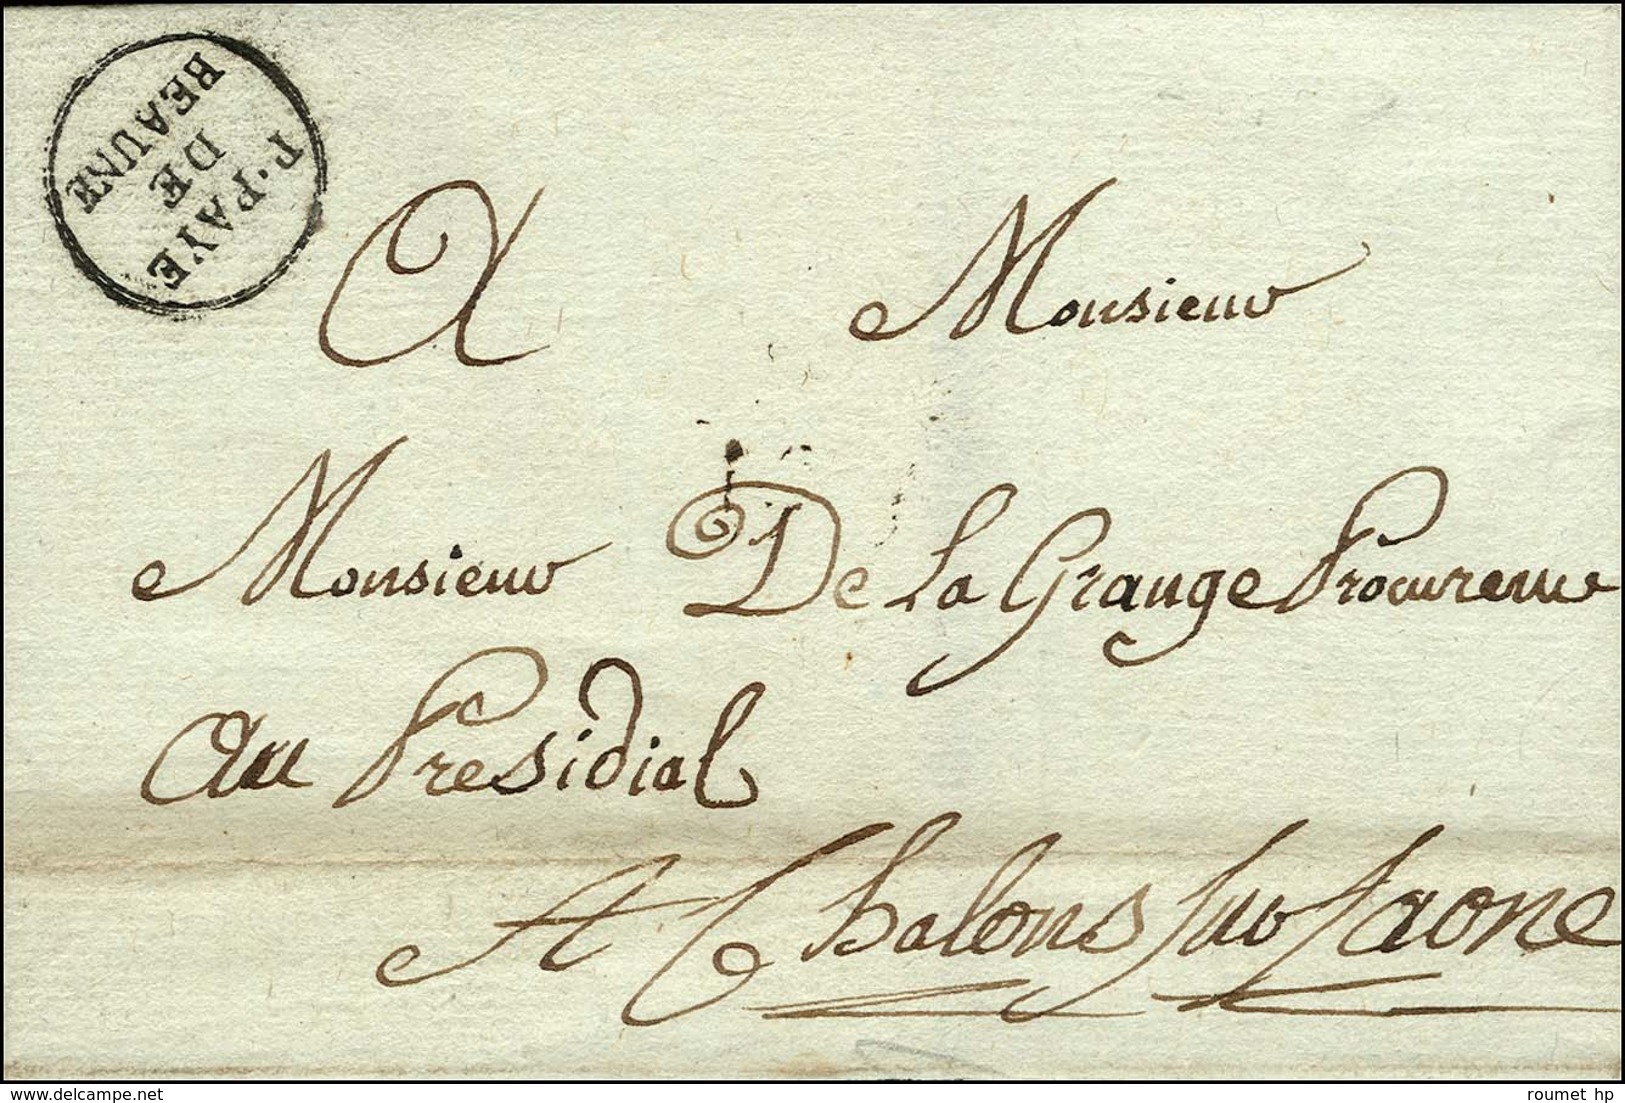 P.PAYE
DE
BEAUNE
A Monsieur
Monsieur De La Grange Procureur
Au Presidial
A Chalons sur saone
roumet hp